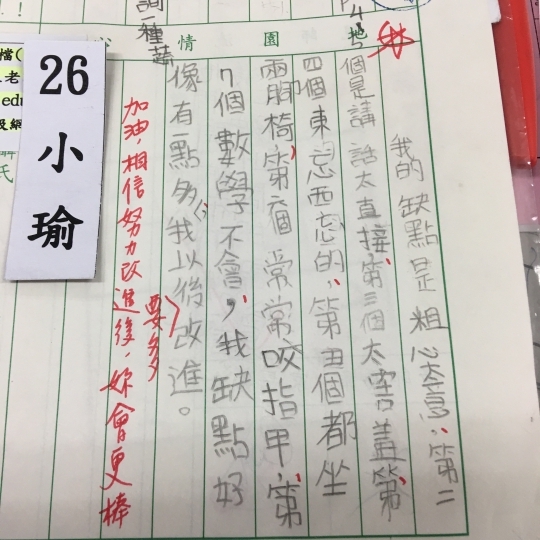 心情園地
我的缺點是粗心大意，第二
個是講話太直接，第三個太害羞，第
四個東忘西忘的，第五個都坐
兩腳椅，第六個常常咬指甲，第
7個數學不會，我缺點好
像有一點多，我以後要多改進。
加油，相信努力改進後，妳會更棒
26
小瑜
詞一種
P4
檔(
老
edu
及網